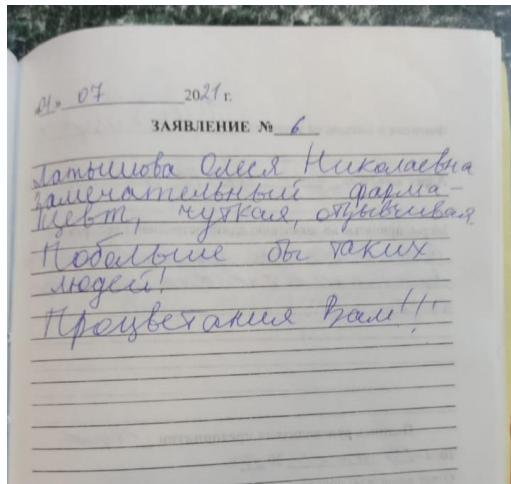 «01» 07 2021 г.
ЗАЯВЛЕНИЕ № 6
Латышова Олеся Николаевна
замечательный фарма-
цевт, чуткая, отзывчивая
Побольше бы таких
людей!
Процветания Вам!!!